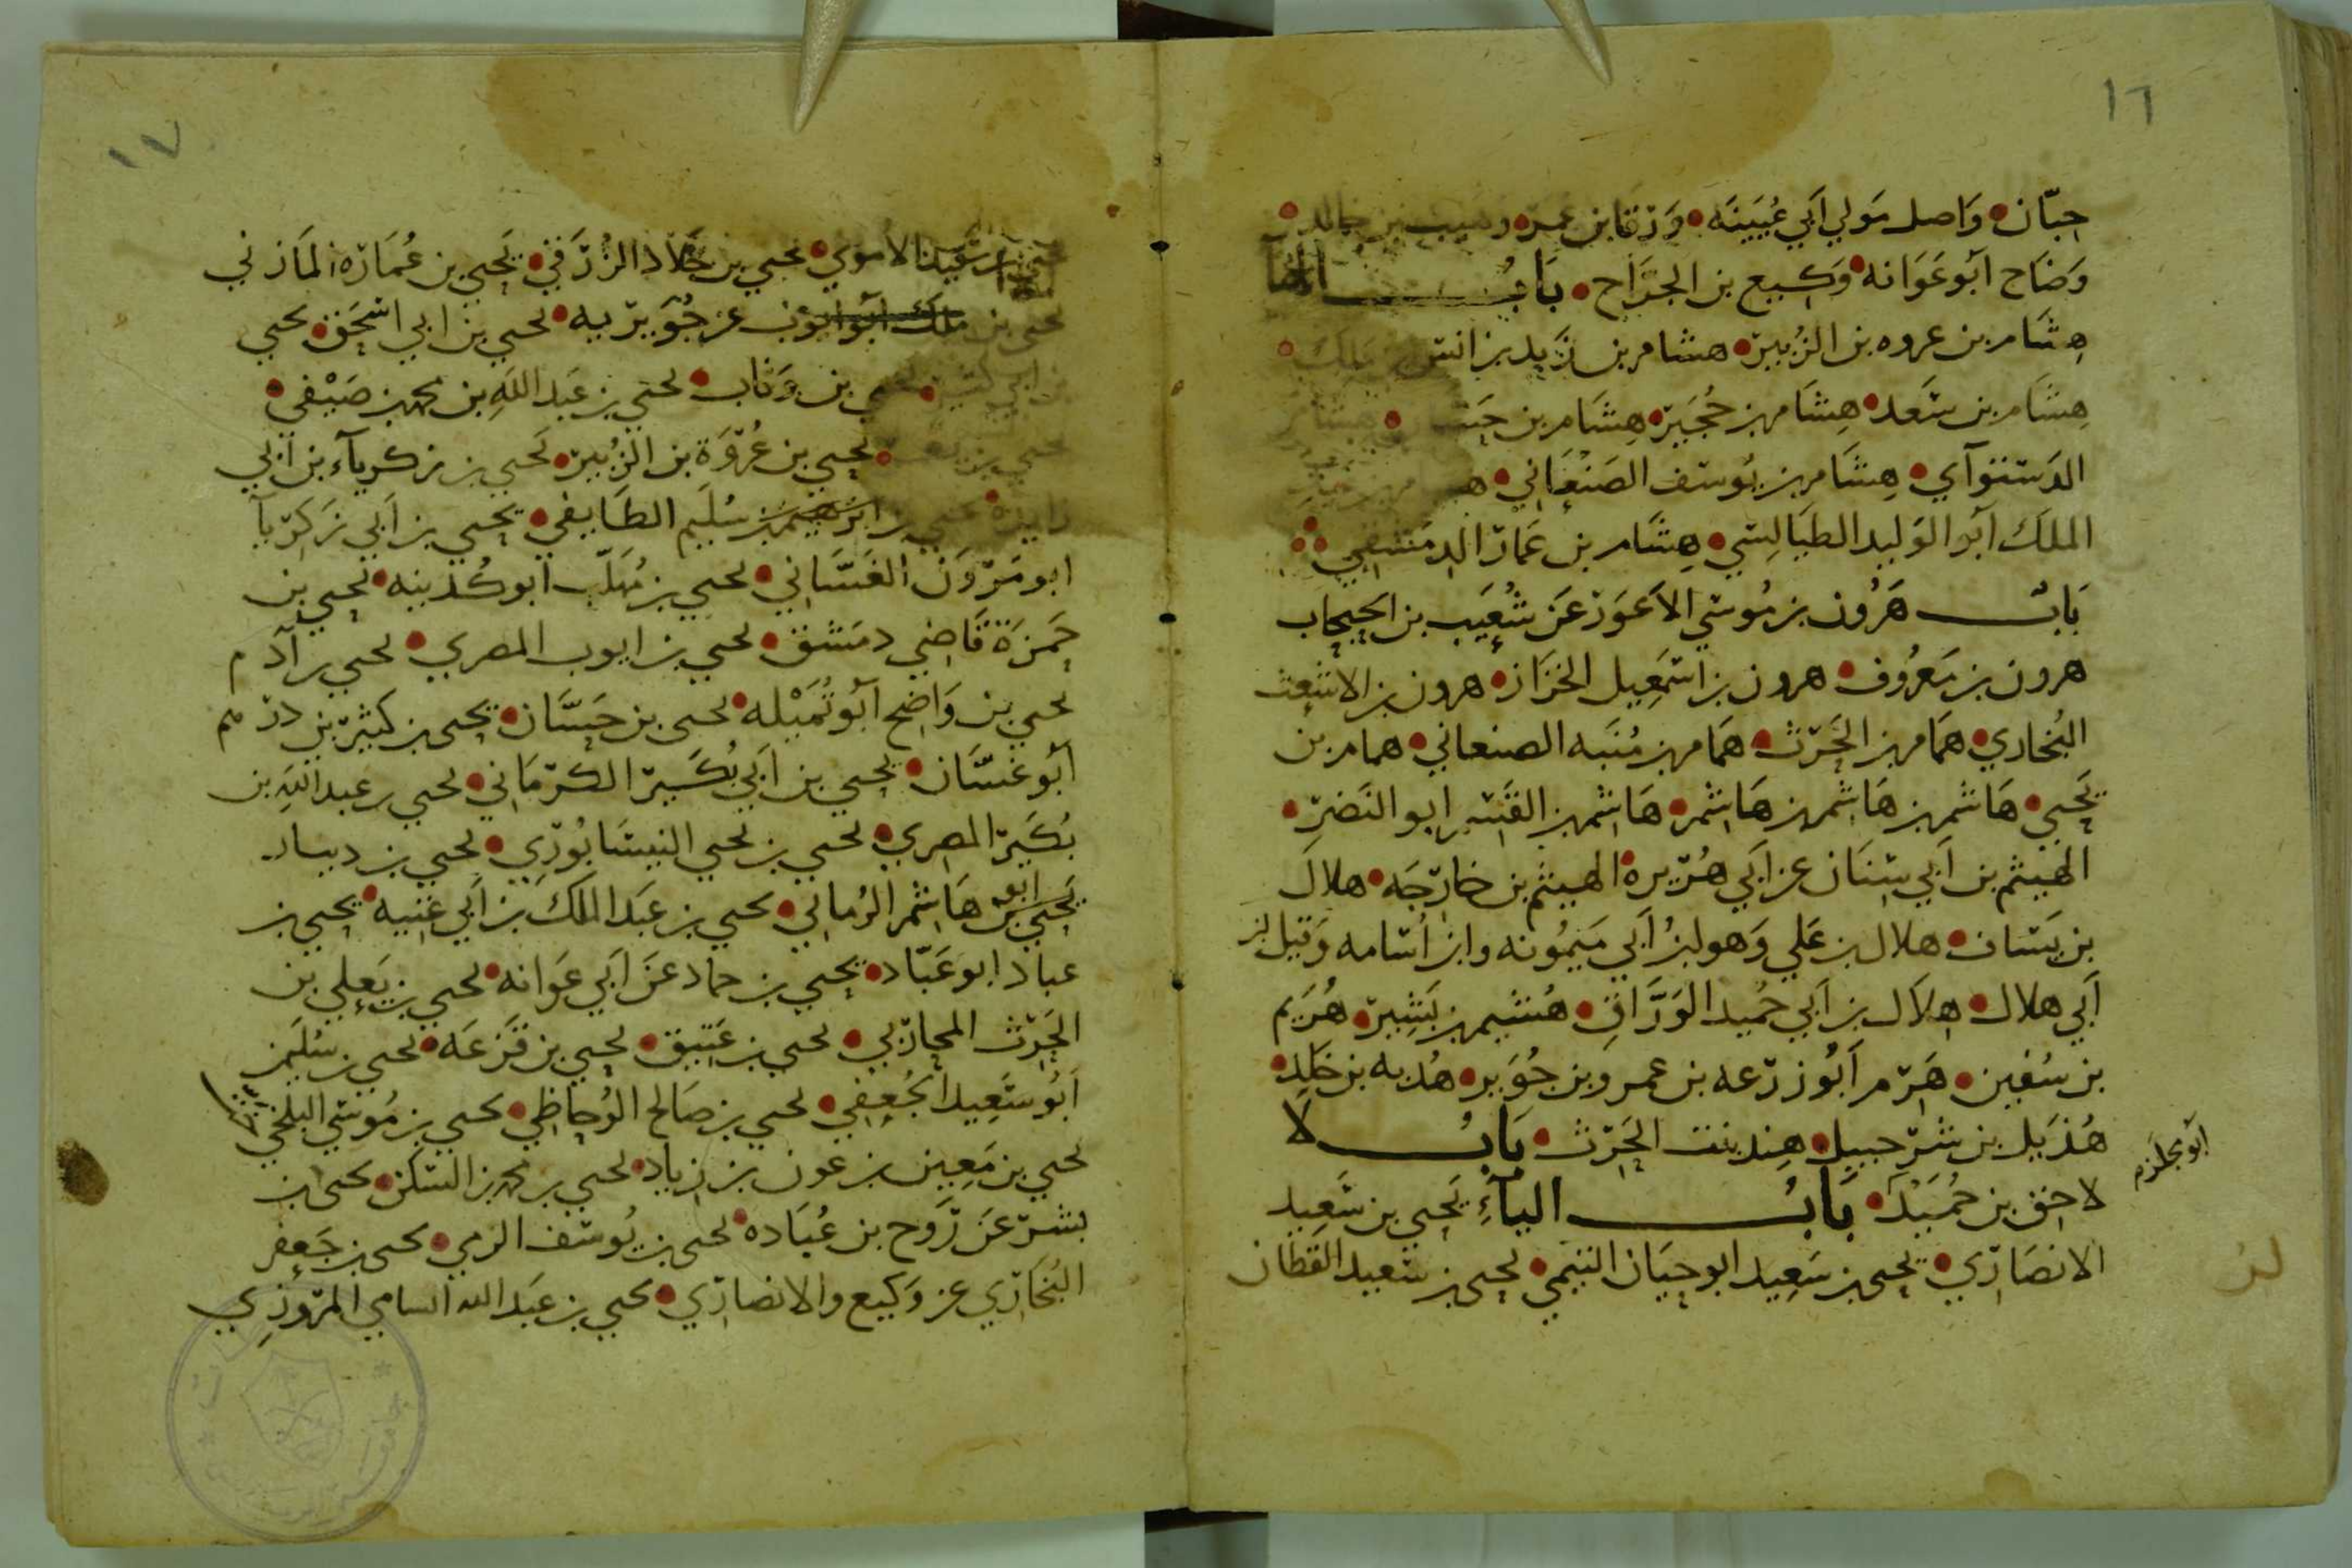 ١٦
حبّان وَاصل مَولي اَبي عُيَينَه وَرقا بن عمر وهيب بن خالد
وَضاح اَبو عَوَانه وَكيع بن الجرَاح بَابُ الها
هِشَام بن عروه بن الزُبير هشام بن زَيد بن انس بن مَلك
هِشَام بن سَعد هِشَام بن حُجَير هِشَام بن حَسَّان هِشَام
الدَستوآي هِشَام بن يُوسف الصَنعَاني هشام بن عبد
الملك اَبو الوَليد الطيَالِسي هِشَام بن عَمار الدمَشقي
بَابُ هَرُون بن مُوسَي الاَعوَر عَن شُعَيب بن الحبحاب
هرون بن مَعرُوف هرون بن اسمَعيل الخزَاز هرون بن الاشعث
البُخاري همَام بن الحَرث همَام بن مُنَبه الصنعاني همام بن
يَحيي هَاشم بن هَاشم بن هَاشم هَاشم بن القسم ابو النَضر
الهيثم بن اَبي سنَان عن اَبي هُريره الهيثم بن خارجَه هلال
بن يسَاف هلال بن عَلي وَهو ابنُ اَبي مَيمُونه وابن اُسَامه وَقيل ابن
اَبي هلال هلاَل بن اَبي حُميد الوَرَّاق هُشيم بن بَشِير هُرَيم
بن سُفين هَرم اَبُو زرعه بن عمرو بن جُوَير هُدبه بن خَلد
هُذَيل بن شرحبيل هِند بنت الحَرث بَابُ لا
ابو مجلزم
لاحق بن حُمَيد بَابُ اليآءِ يَحيي بن سَعِيد
الانصَاري يحيى بن سَعِيد ابو حيَان التيمي يحيى بن سَعيد القَطان
١٧
يحيي بن سَعِيد الاموي يحيي بن خَلاد الزُرَقي يَحيي بن عُمَارَه المَازني
يحيي بن ملك ابو ايوب عن جُوَيريه يحيي بن ابي اسحَق يحيي
بن ابي كثير يحيي بن وَثاب يحيي بن عَبد اللَهِ بن محمد بن صَيْفي
يحيي بن يعمر يحيي بن عُروَة بن الزُبير يَحيي بن زكريآء بن اَبي
زايدَه يحيي بن ابرَهيم بن سُلَيم الطَايفي يحيي بن اَبي زَكَريآ
ابو مَروَن الغَسَّاني يحيي بن مُهلَّب ابو كُدَينه يحيي بن
حَمزَة قَاضي دمَشق يحيي بن ايوب المصري يحيي بن آدم
يحيي بن وَاضح اَبُو تُمَيْله يحيى بن حَسَّان يحيى بن كثير بن درهم
اَبُو غسَّان يحيي بن اَبي بُكَير الكرمَاني يحيي بن عبد اللهِ بن
بُكَير المصري يحيي بن يحيي النيسَابُوري يحيي بن دينار
ابو
يَحيي بن هَاشم الرُماني يحيي بن عَبد الملك بن اَبي غَنيه يحيى بن
عباد ابو عَبّاد يحيي بن حماد عَن اَبي عَوانه يحيي بن يَعلي بن
الحَرث المحاربي يحيي بن عَتيق يحيي بن قَزَعَه يحيي بن سُلَيمن
اَبُو سَعِيد الجُعفي يحيي بن صَالح الوُحاظي يحيي بن مُوسَي البلخي
يحيي بن مَعِين بن عون بن زياد يحيي بن محمد بن السَكن يحيى بن
بشر عَن رَوح بن عُبَاده يحيى بن يُوسف الزمي يحيى بن جَعفر
البُخَاري عن وَكيع والانصاري يحيي بن عَبد الله السامي المروَزِي